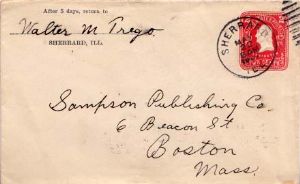 After 5 days, return to
Walter M. Trego
SHERRARD, ILL.
SHERRARD
ILL.
Sampson Publishing Co.
6 Beacon St
Boston
Mass.